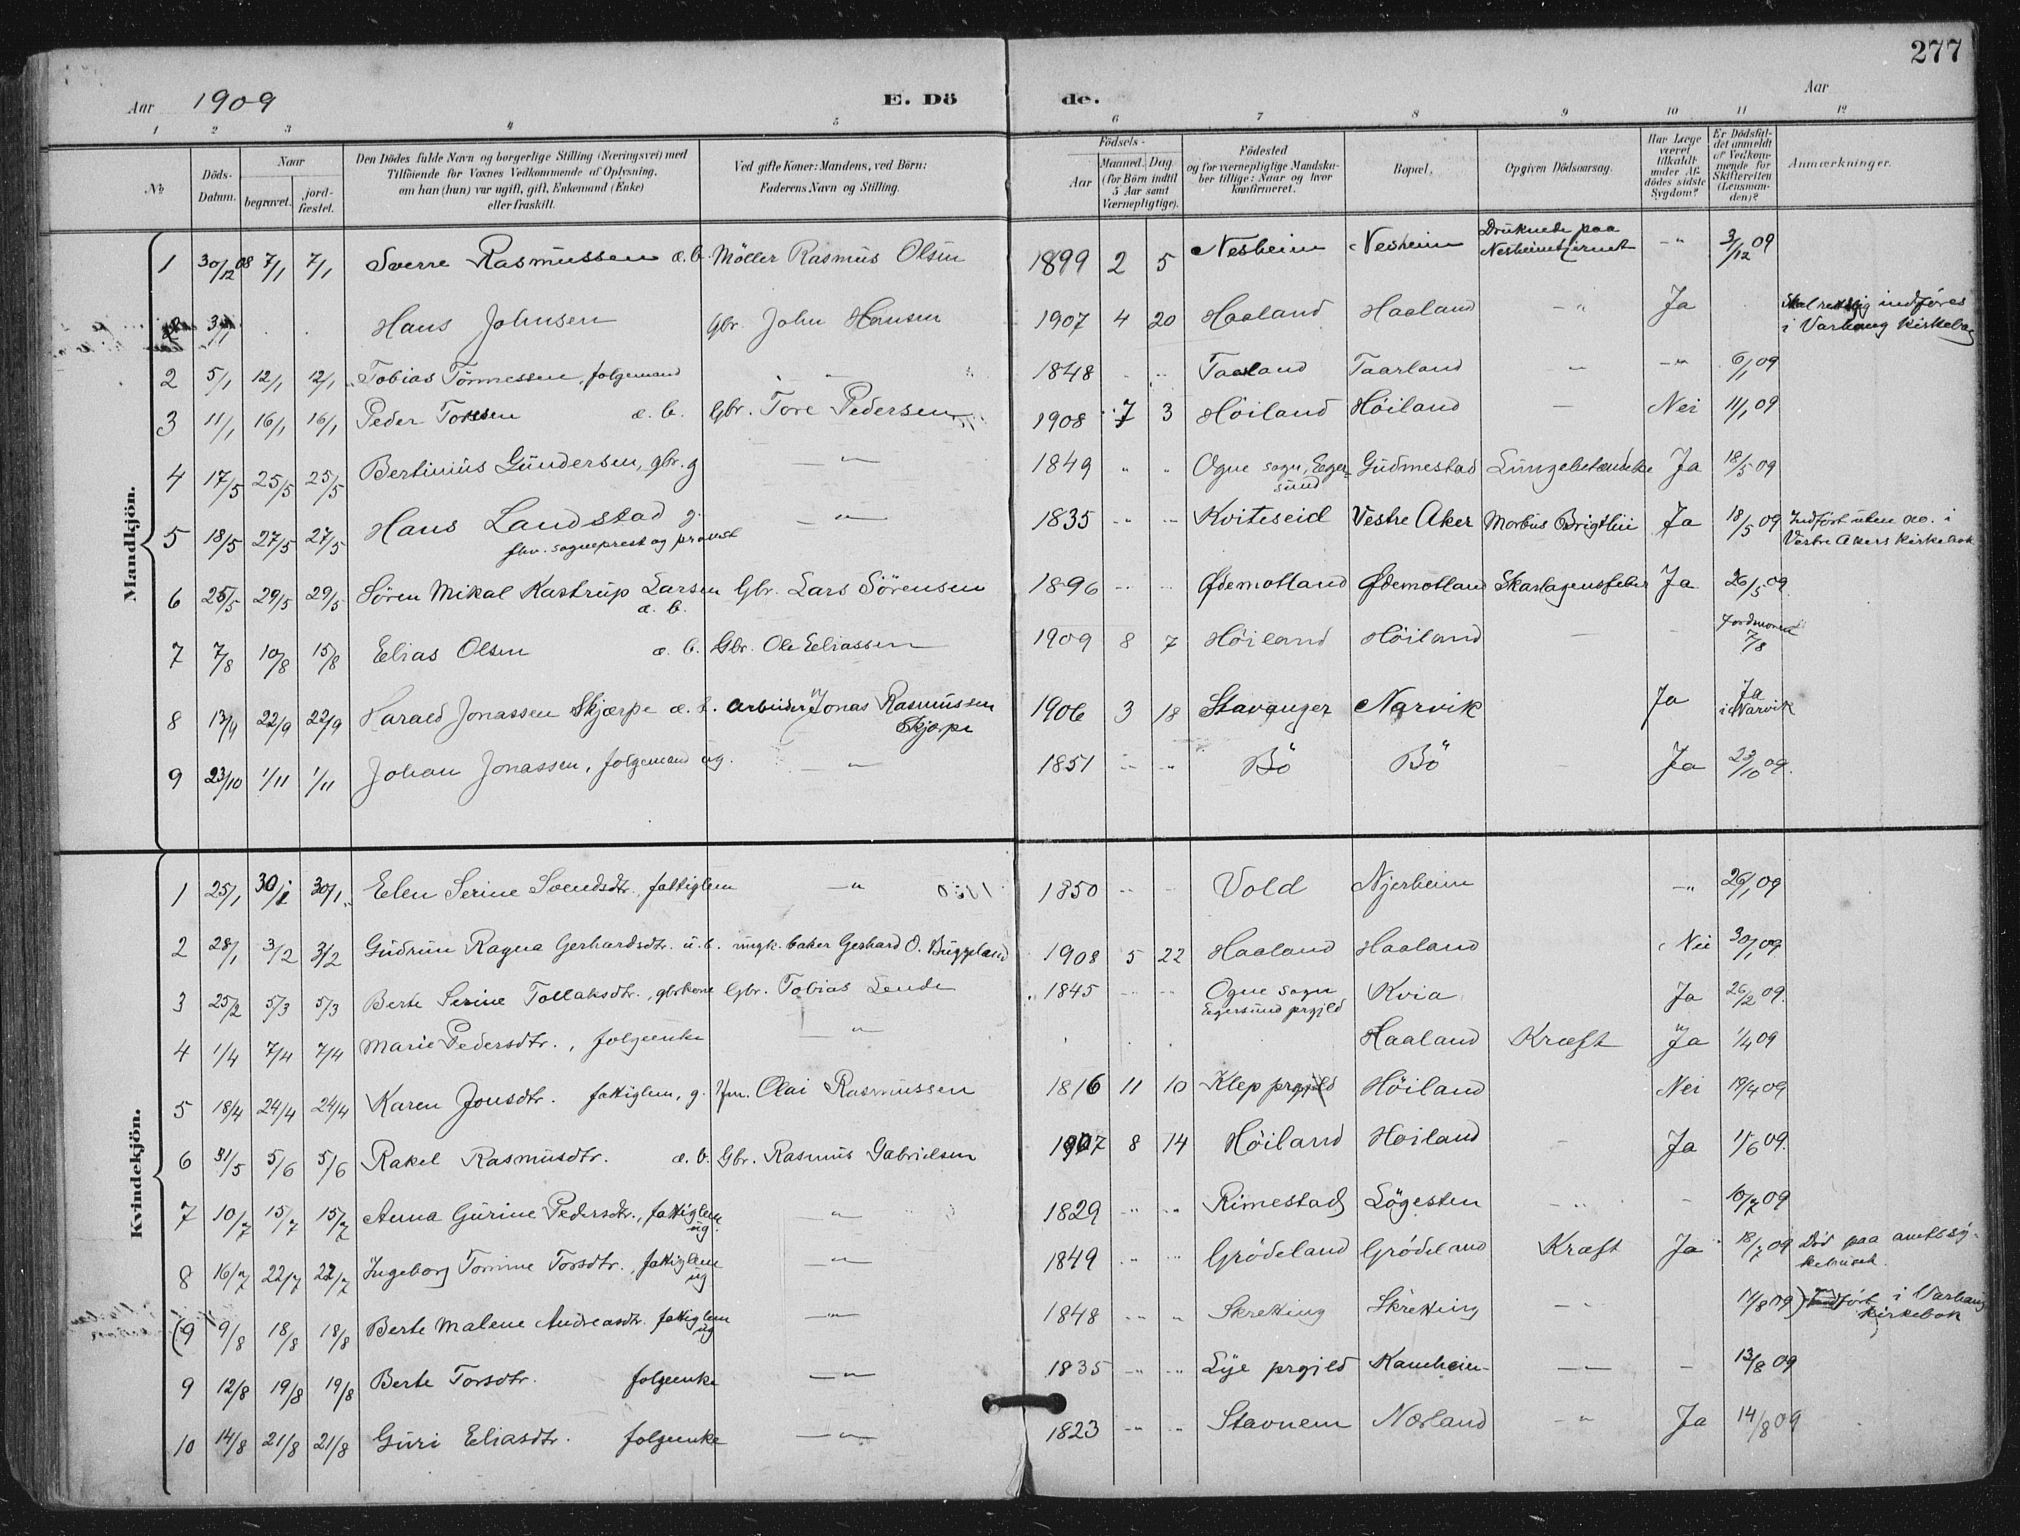 277
Aar 1909 E. Dö de. Aar
1 2 3 4 5 6 7 8 9 10 11 12
No
Döds-Datum.
Naar
begravet.
jord-fæstet.
Den Dödes fulde Navn og borgerlige Stilling (Næringsvei) med
Tilföiende for Voxnes Vedkommende af Oplysning,
om han (hun) var ugift, gift, Enkemand (Enke)
eller fraskilt.
Ved gifte Koner: Mandens, ved Börn:
Faderens Navn og Stilling.
Födsels-
Aar
Maaned. Dag.
(for Börn indtil
5 Aar samt
Værnepligtige).
Födested
og for værnepligtige Mandska-
ber tillige: Naar og hvor
konfirmeret.
Bopæl.
Opgiven Dödsaarsag.
Har Læge
været
tilkaldt
under Af-
dödes sidste
Sygdom?
Er Dödsfal-
det anmeldt
af Vedkom-
mende for
Skifteretten
(Lensman-
den)?
Anmærkninger.
Mandkjön.
1 30/12 08 7/1 7/1 Sverre Rasmussen æ.b. Möller Rasmus Olsen 1899 2 5 Nesheim Nesheim Druknede paa Nesheimtjernet -"- 3/12 09
3/1 Hans Johnsen Gbr. John Hansen 1907 4 20 Haaland Haaland -"- Ja indføres
i Varhaug Kirkebog
2 5/1 12/1 12/1 Tobias Tönnessen, folgemand -"- 1848 " " Taarland Taarland -"- -"- 6/1 09
3 11/1 16/1 16/1 Peder Toresen æ.b. Gbr. Tore Pedersen 1908 7 3 Höiland Höiland — Nei 11/1 09
4 17/5 25/5 25/5 Bertinius Gundersen, gbr. g -"- 1849 " " Ogne sogn, Eger-
sund Gudmestad Lungebetændelse Ja 18/5 09
5 18/5 27/5 27/5 Hans Landstad g. -"- 1835 " " Kviteseid Vestre Aker Morbus Brigthii Ja 18/5 09 Indført uten no. i
fhv. sogneprest og provst Vestre Akers Kirkebok
6 25/5 29/5 29/5 Sören Mikal Kastrup Larsen Gbr. Lars Sörensen 1896 " " Ødemotland Ødemotland Skarlagensfeber Ja 26/5 09
æ. b.
7 7/8 10/8 15/8 Elias Olsen æ. b. Gbr. Ole Eliassen 1909 8 7 Höiland Höiland — - Jordmoren
7/8
8 13/9 22/9 22/9 Harald Jonassen Skjærpe æ. b. Arbeider Jonas Rasmussen 1906 3 18 Stavanger Narvik Ja Ja
Skjærpe i Narvik
9 23/10 1/11 1/11 Johan Jonassen, folgemand ug. -"- 1851 " " Bö Bö Ja 23/10 09.
Kvindekjön.
1 25/1 30/1 30/1 Elen Serine Svendsdtr. fattiglem -"- 1850 " " Vold Njerheim -"- 26/1 09
2 28/1 3/2 3/2 Gudrun Ragna Gerhardsdtr. u.b. ungk. baker Gerhard O. Buggeland 1908 5 22 Haaland Haaland Nei 30/1 09
3 25/2 5/3 5/3 Berte Serine Tollaksdtr., gbrkone Gbr. Tobias Lende 1845 " " Ogne sogn Kvia Ja 26/2 09.
Egersund prgjld
4 1/4 7/4 7/4 Marie Pedersdtr., folgeenke -"- Haaland Kræft Ja 1/4 09
5 18/4 24/4 24/4 Karen Jonsdtr. fattiglem, g. Olai Rasmussen 1816 11 10 Klep prgjeld Höiland Nei 19/4 09
6 31/5 5/6 5/6 Rakel Rasmusdtr. æ. b. Gbr. Rasmus Gabrielsen 1907 8 14 Höiland Höiland - Ja 1/6 09.
7 10/7 15/7 15/7 Anna Gurine Pedersdtr., fattiglem -"- 1829 " " Rimestad Lögesten -"- - 10/7 09
ug.
8 16/7 22/7 22/7 Ingeborg Tomine Torsdtr., fattiglem -"- 1849 " " Grödeland Grödeland Kræft Ja 18/7 09 Död paa amtssy-
ug kehuset.
(9 9/8 18/8 18/8 Berte Malene Andreasdtr. fattiglem -"- 1848 " " Skretting Skretting -"- 14/8 09) Indført i Varhaug
ug Kirkebok
9 12/8 19/8 19/8 Berte Torsdtr. folgeenke -"- 1835 " " Lye prgjld -"- - 13/8 09
10 14/8 21/8 21/8 Guri Eliasdtr. folgeenke -"- 1823 " " Stavnem Nærland -"- Ja 14/8 09